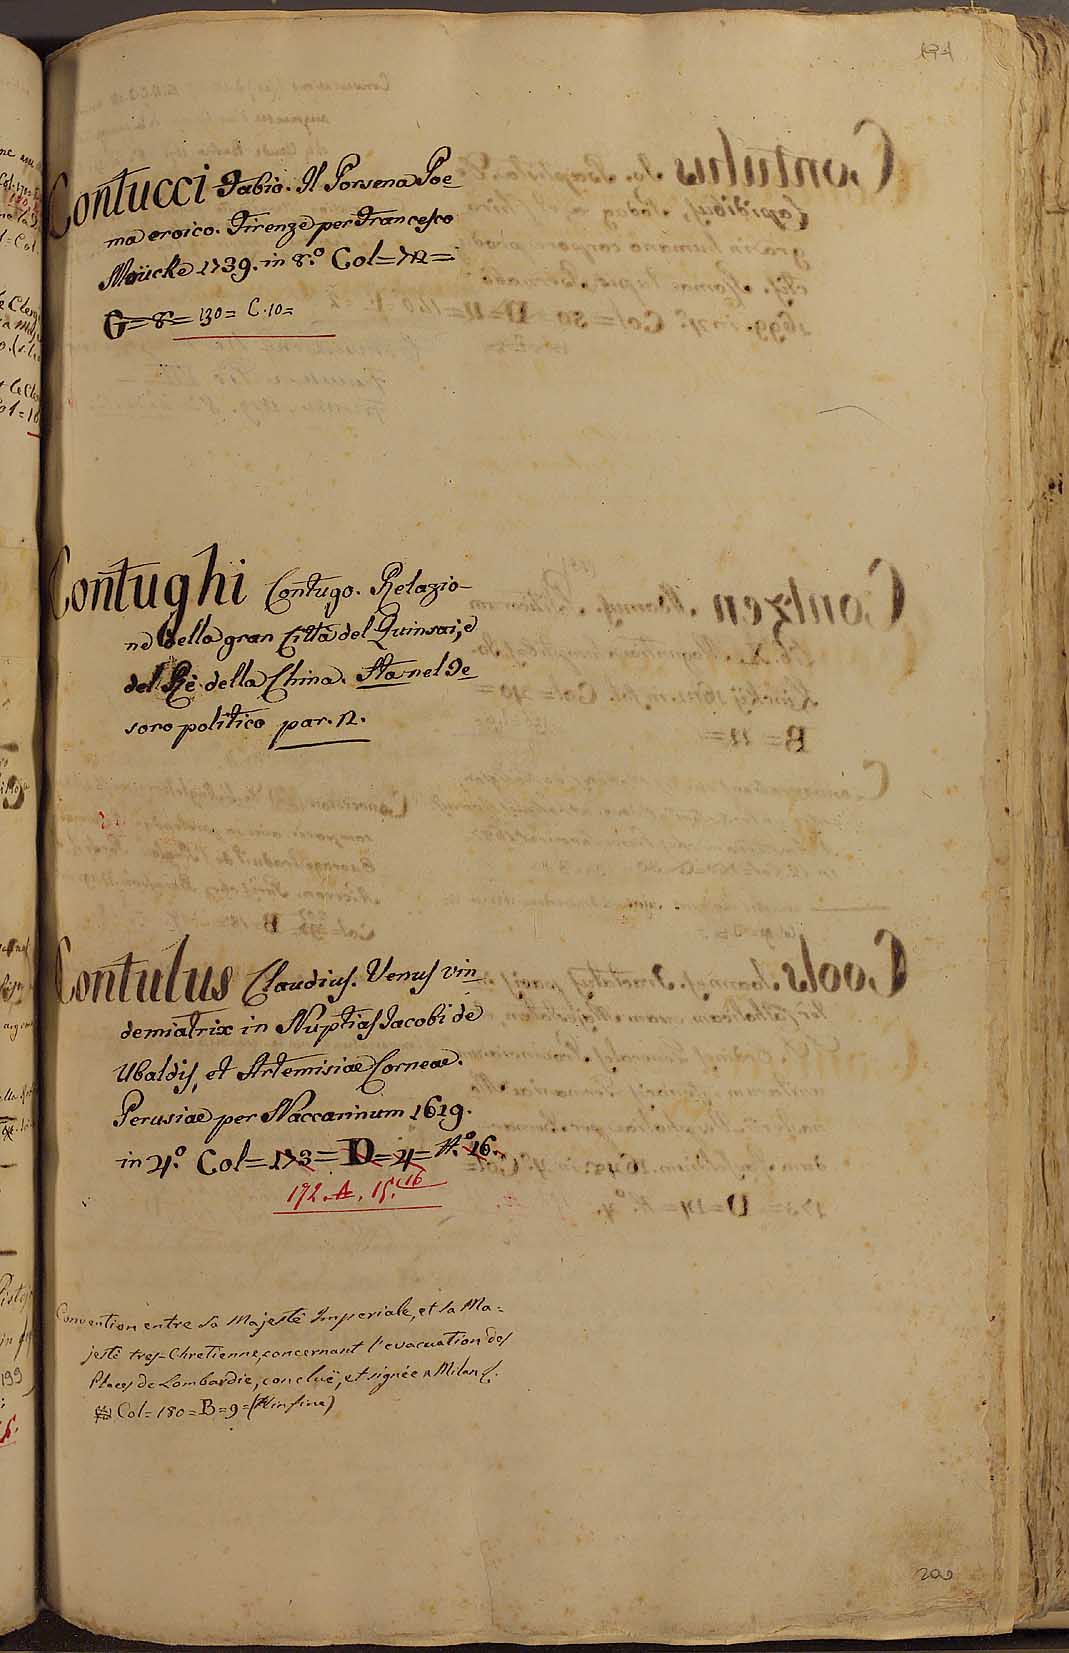 194
Contucci Fabio. Il Porsena Poe
ma eroico. Firenze per Francesco
Moücke 1739. in 8.º Col=72=
G=8= 130= C.10=
Contughi Contugo. Relazio-
ne della gran Città del Quinsai, e
del Rè della China. Sta nel Te
soro politico par. 12.
Contulus Claudius. Venus vin
demiatrix in Nuptias Jacobi de
Ubaldis, et Artemisiae Corneae.
Perusiae per Naccarinum 1619.
in 4.º Col=173=D=4=N.º 16.
192. A. 15. 16
Convention entre Sa Majesté Imperiale, et Sa Ma=
jesté tres-Chretienne, concernant l'evacuation des
Places de Lombardie, concluë, et signée a Milan &.
Col=180=B=9=(H in fine)
200